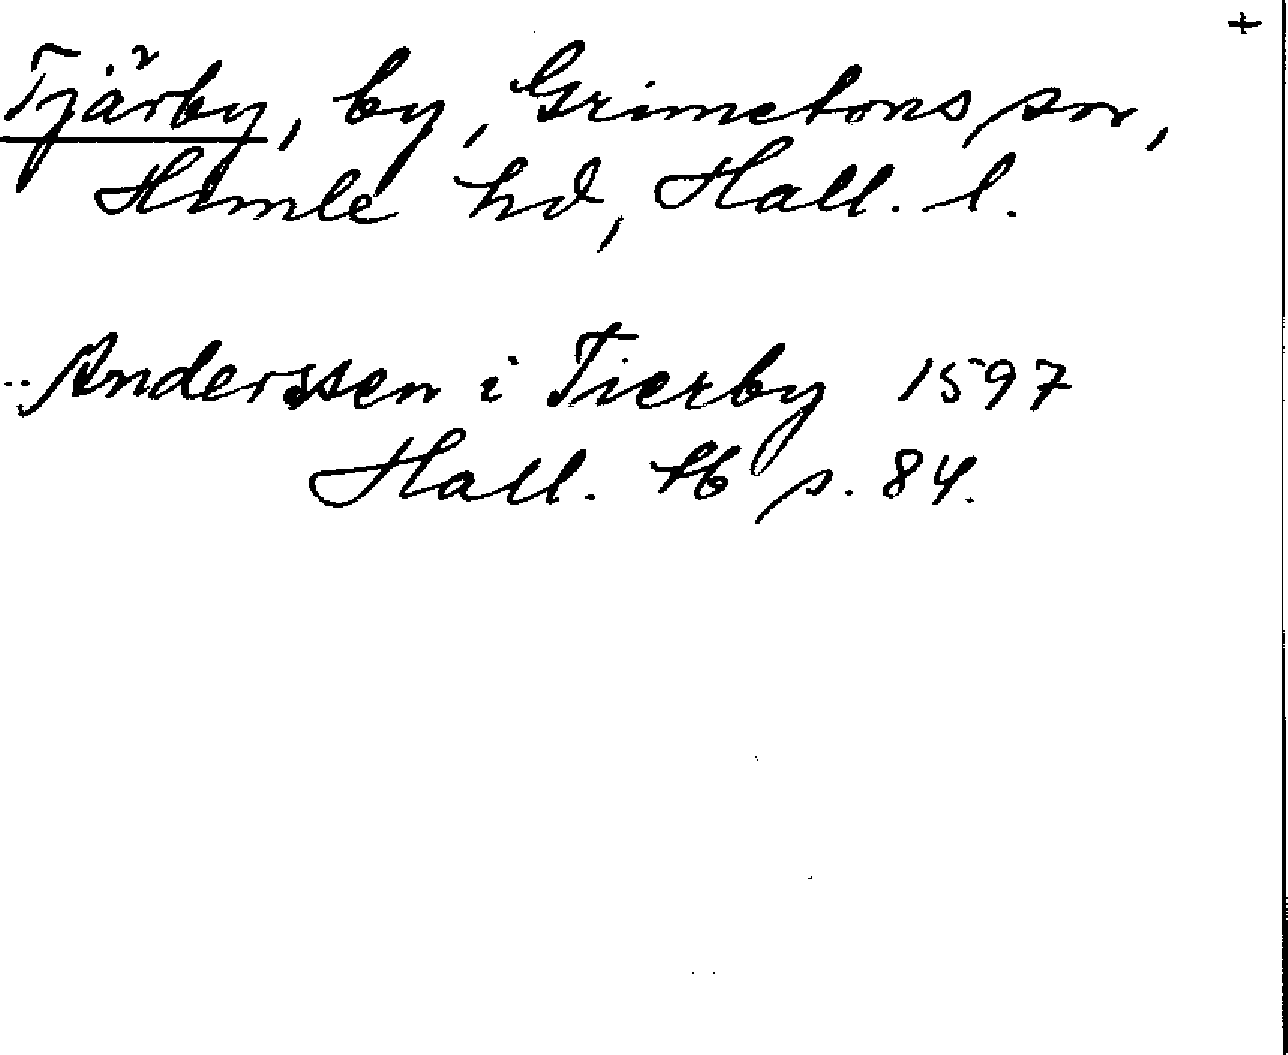 +
Tjärby, by, Grimetons sn,
Himle hd, Hall. l.
..Anderssen i Tierby 1597
Hall. p. 84.